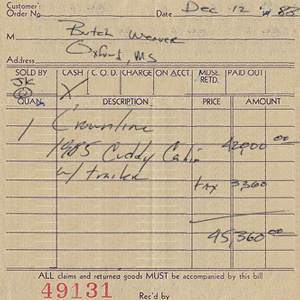 Customer's
Order No. Date Dec 12 19 88
M Butch Weaver
Oxford, MS
Address
SOLD BY CASH C.O.D. CHARGE ON ACCT. MDSE. RETD. PAID OUT
JK X
QUAN. DESCRIPTION PRICE AMOUNT
1 Crownline
1985 Cuddy Cabin 42000 00
w/ trailer TAX 3360
45,360 00
ALL claims and returned goods MUST be accompanied by this bill
49131 Rec'd by